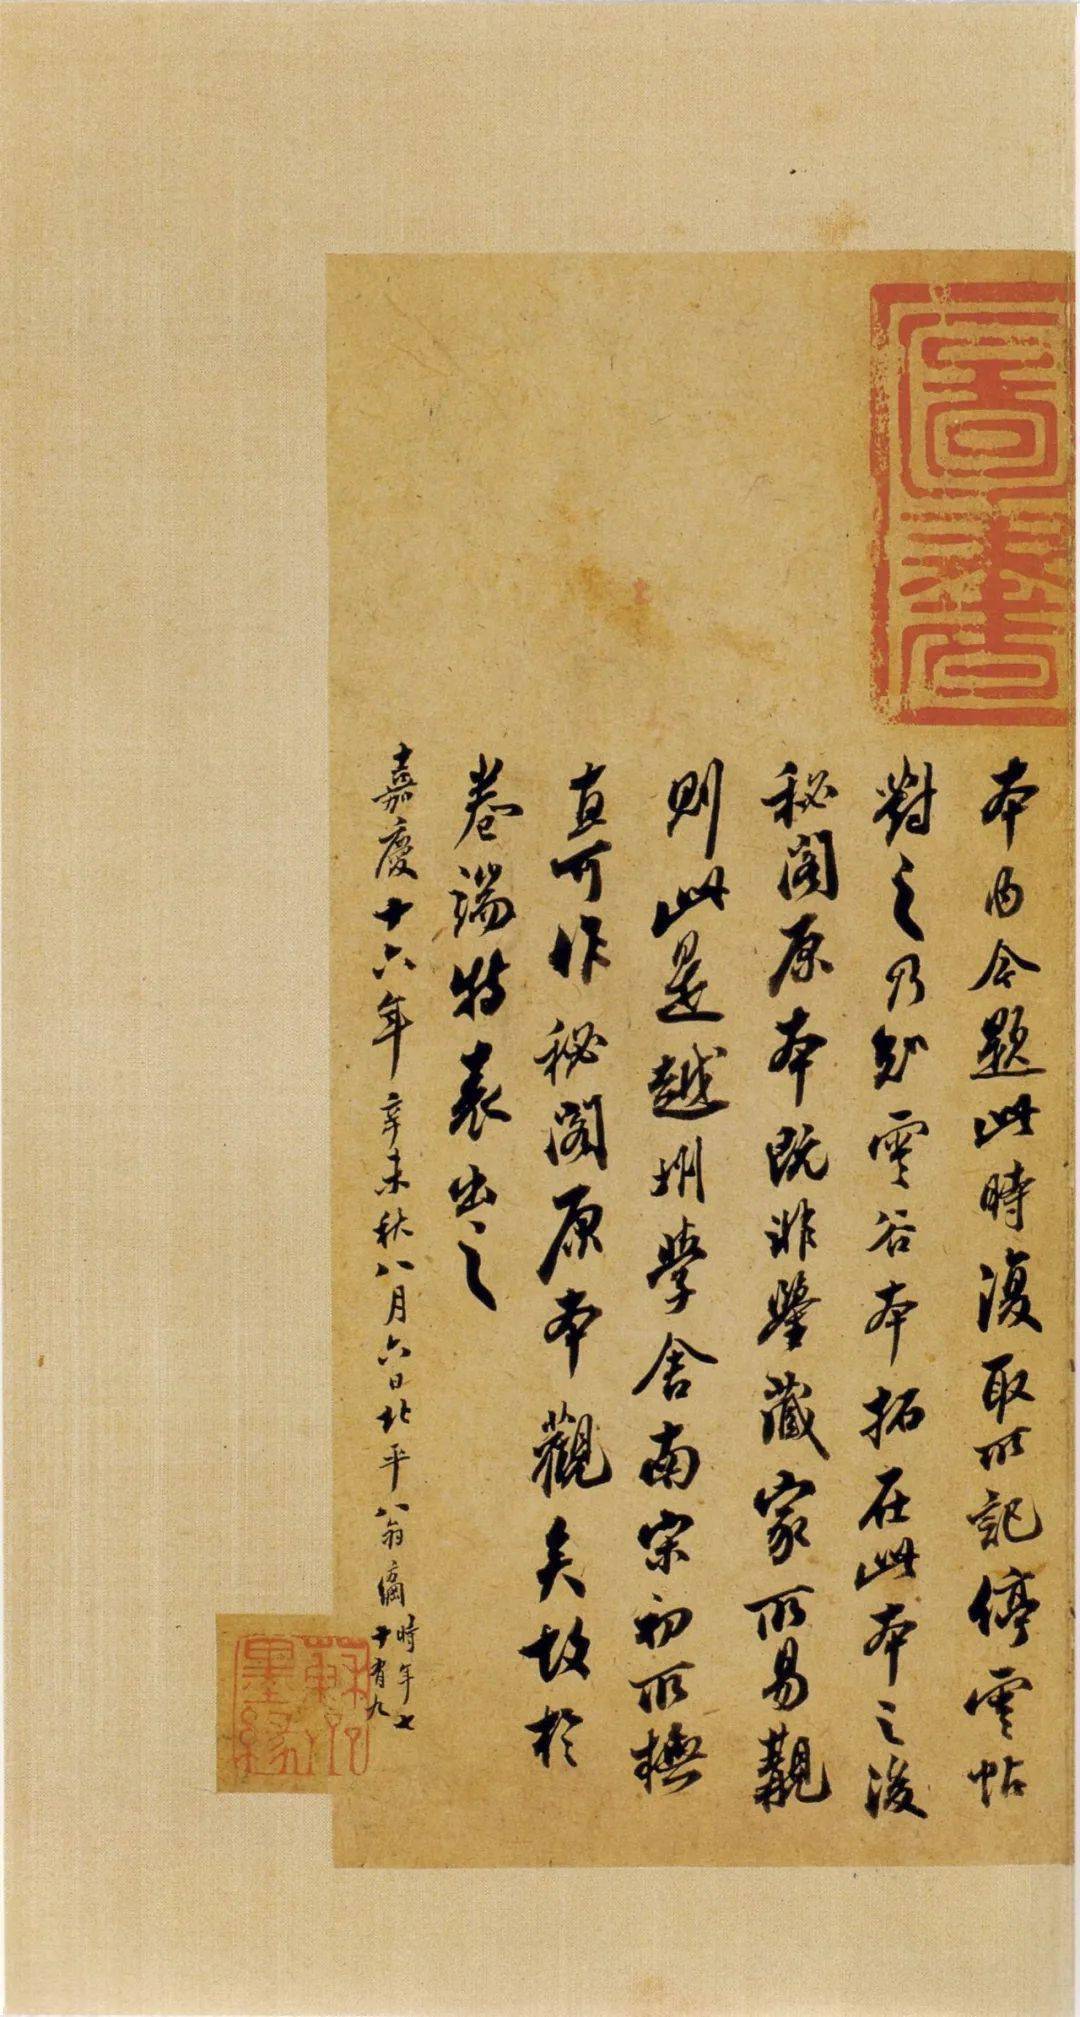 本內今題此時復取所記停雲帖
對之乃知雲谷本拓在此本之後
秘閣原本既非鑒藏家所易觀
則此是越州學舍南宋初所橅
直可作秘閣原本觀矣故於
卷端特表出之
嘉慶十六年辛未秋八月六日北平翁方綱時年七十有九
蘇米墨緣